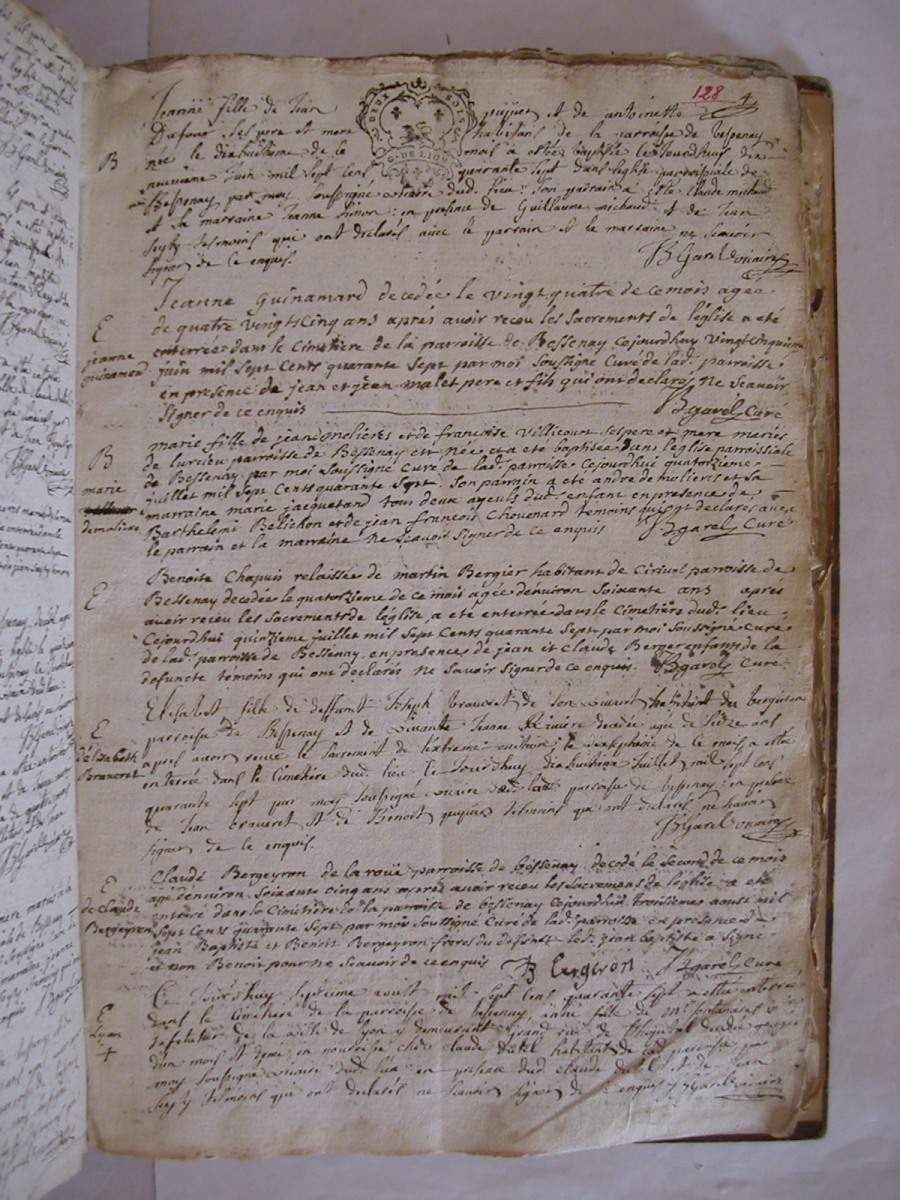 128 4
Jeanne fille de Jean puyjue et de antoinette
Dufour ses pere et mere habitans de la parroisse de bessenay
B
née le dixhuitième de ce mois a estée baptisée ce jourdhuy dix
neuvième juin mil sept cens quarante sept dans leglise parroissiale de
DEUX SOLS
G. DE LION
Bessenay par moy soussigné vicaire dud. lieu. Son parrain a esté claude michaud
et sa marraine Jeanne Simon: en presence de Guillaume michaud et de Jean
tesmoins qui ont declarés avec le parrain et la marraine ne scavoir
signer de ce enquis. BGarel vicaire
Jeanne Guinamard decedée le vingt quatre de ce mois agée
E
de quatre vingts cinq ans aprés avoir receu les Sacrements de léglise a eté
jeanne
enterrée dans le Cimetière de la parroisse de Bessenay cejourdhuy vingt cinquieme
guinamard
juin mil Sept Cents quarante Sept par moi Soussigné Curé de lad. parroisse
en presence de jean et jean malet pere et fils qui ont declarés Ne Scavoir
Signer de ce enquis Bgarel Curé
marie fille de jean et de françoise Villicourt Ses pere et mere mariés
B
de Lurcieu parroisse de Bessenay est née et a eté baptisée dans léglise parroissiale
de Bessenay par moi Soussigné Curé de lad. parroisse Cejourdhui quatorzieme
marie
juillet mil Sept Cents quarante Sept. Son parrain a eté andre de molieres et Sa
marraine marie jacquetand tous deux ayeuls dud. enfant en presence de
demoliere
Barthelemi Bellichon et de jean françois Chouonard témoins qui ont declares avec
le parrain et la marraine Ne Scavoir Signer de ce enquis Bgarel Curé
Benoite Chapuis relaissée de martin Bergier habitant de Ciriuol parroisse de
E
Bessenay decedée le quatorzieme de ce mois agée denviron Soixante ans aprés
avoir receu les Sacrements de léglise, a eté enterrée dans le Cimetière dud. lieu
Cejourdhui quinzieme juillet mil Sept Cents quarante Sept par moi Soussigné Curé
de lad. parroisse de Bessenay, en presence de jean et Claude Berger enfans de la
defuncte témoins qui ont declarés ne Savoir Signer de ce enquis. Bgarel Curé
Elisabest fille de deffunt Joseph braveret de son vivant habitant du
parroisse de Bessenay et de vivante Jeanne Riviere decedée agée de seize ans
E
apres avoir receue le Sacrement de lextreme onction, le dixseptieme de ce mois, a estée
délizabeth
enterrée dans le Cimetière dud. lieu ce jourdhuy dixhuitieme Juillet mil sept cens
Braveret
quarante sept par moy soussigné vicaire de lad. parroisse de bessenay en presence
de Jean braveret et de Benoit puyjue tesmoins qui ont declarés ne scavoir
signer de ce enquis. BGarel vicaire
Claude Bergeyron de la roüe parroisse de bessenay decedé le Second de ce mois
E
agé denviron Soixante cinq ans apres avoir receu les Sacremens de léglise a eté
de claude
enterré dans le Cimetière de la parroisse de bessenay Cejourdhui troisieme aoust mil
Bergeyron
Sept Cents quarante Sept par moi Soussigné Curé de lad. parroisse en presence de
jean Baptiste et Benoit Bergeyron freres du defunct led. jean baptiste a Signé
et non Benoit pour ne Scavoir de ce enquis B Bergeron Bgarel Curé
Ce Jourdhuy septieme aoust mil sept cens quarante sept a esté enterré
E
dans le Cimetière de la parroisse de bessenay, fille de mr.
de la ville de Lyon y demeurant grand rue de l'hopital decedée agée
Lyon
dun mois et demi, en nourrisse chés claude habitant de lad. parroisse par
moy soussigné vicaire dud. lieu: en presence dud claude et de Jean
tesmoins qui ont declarés ne scavoir signer de ce enquis. BGarel vicaire